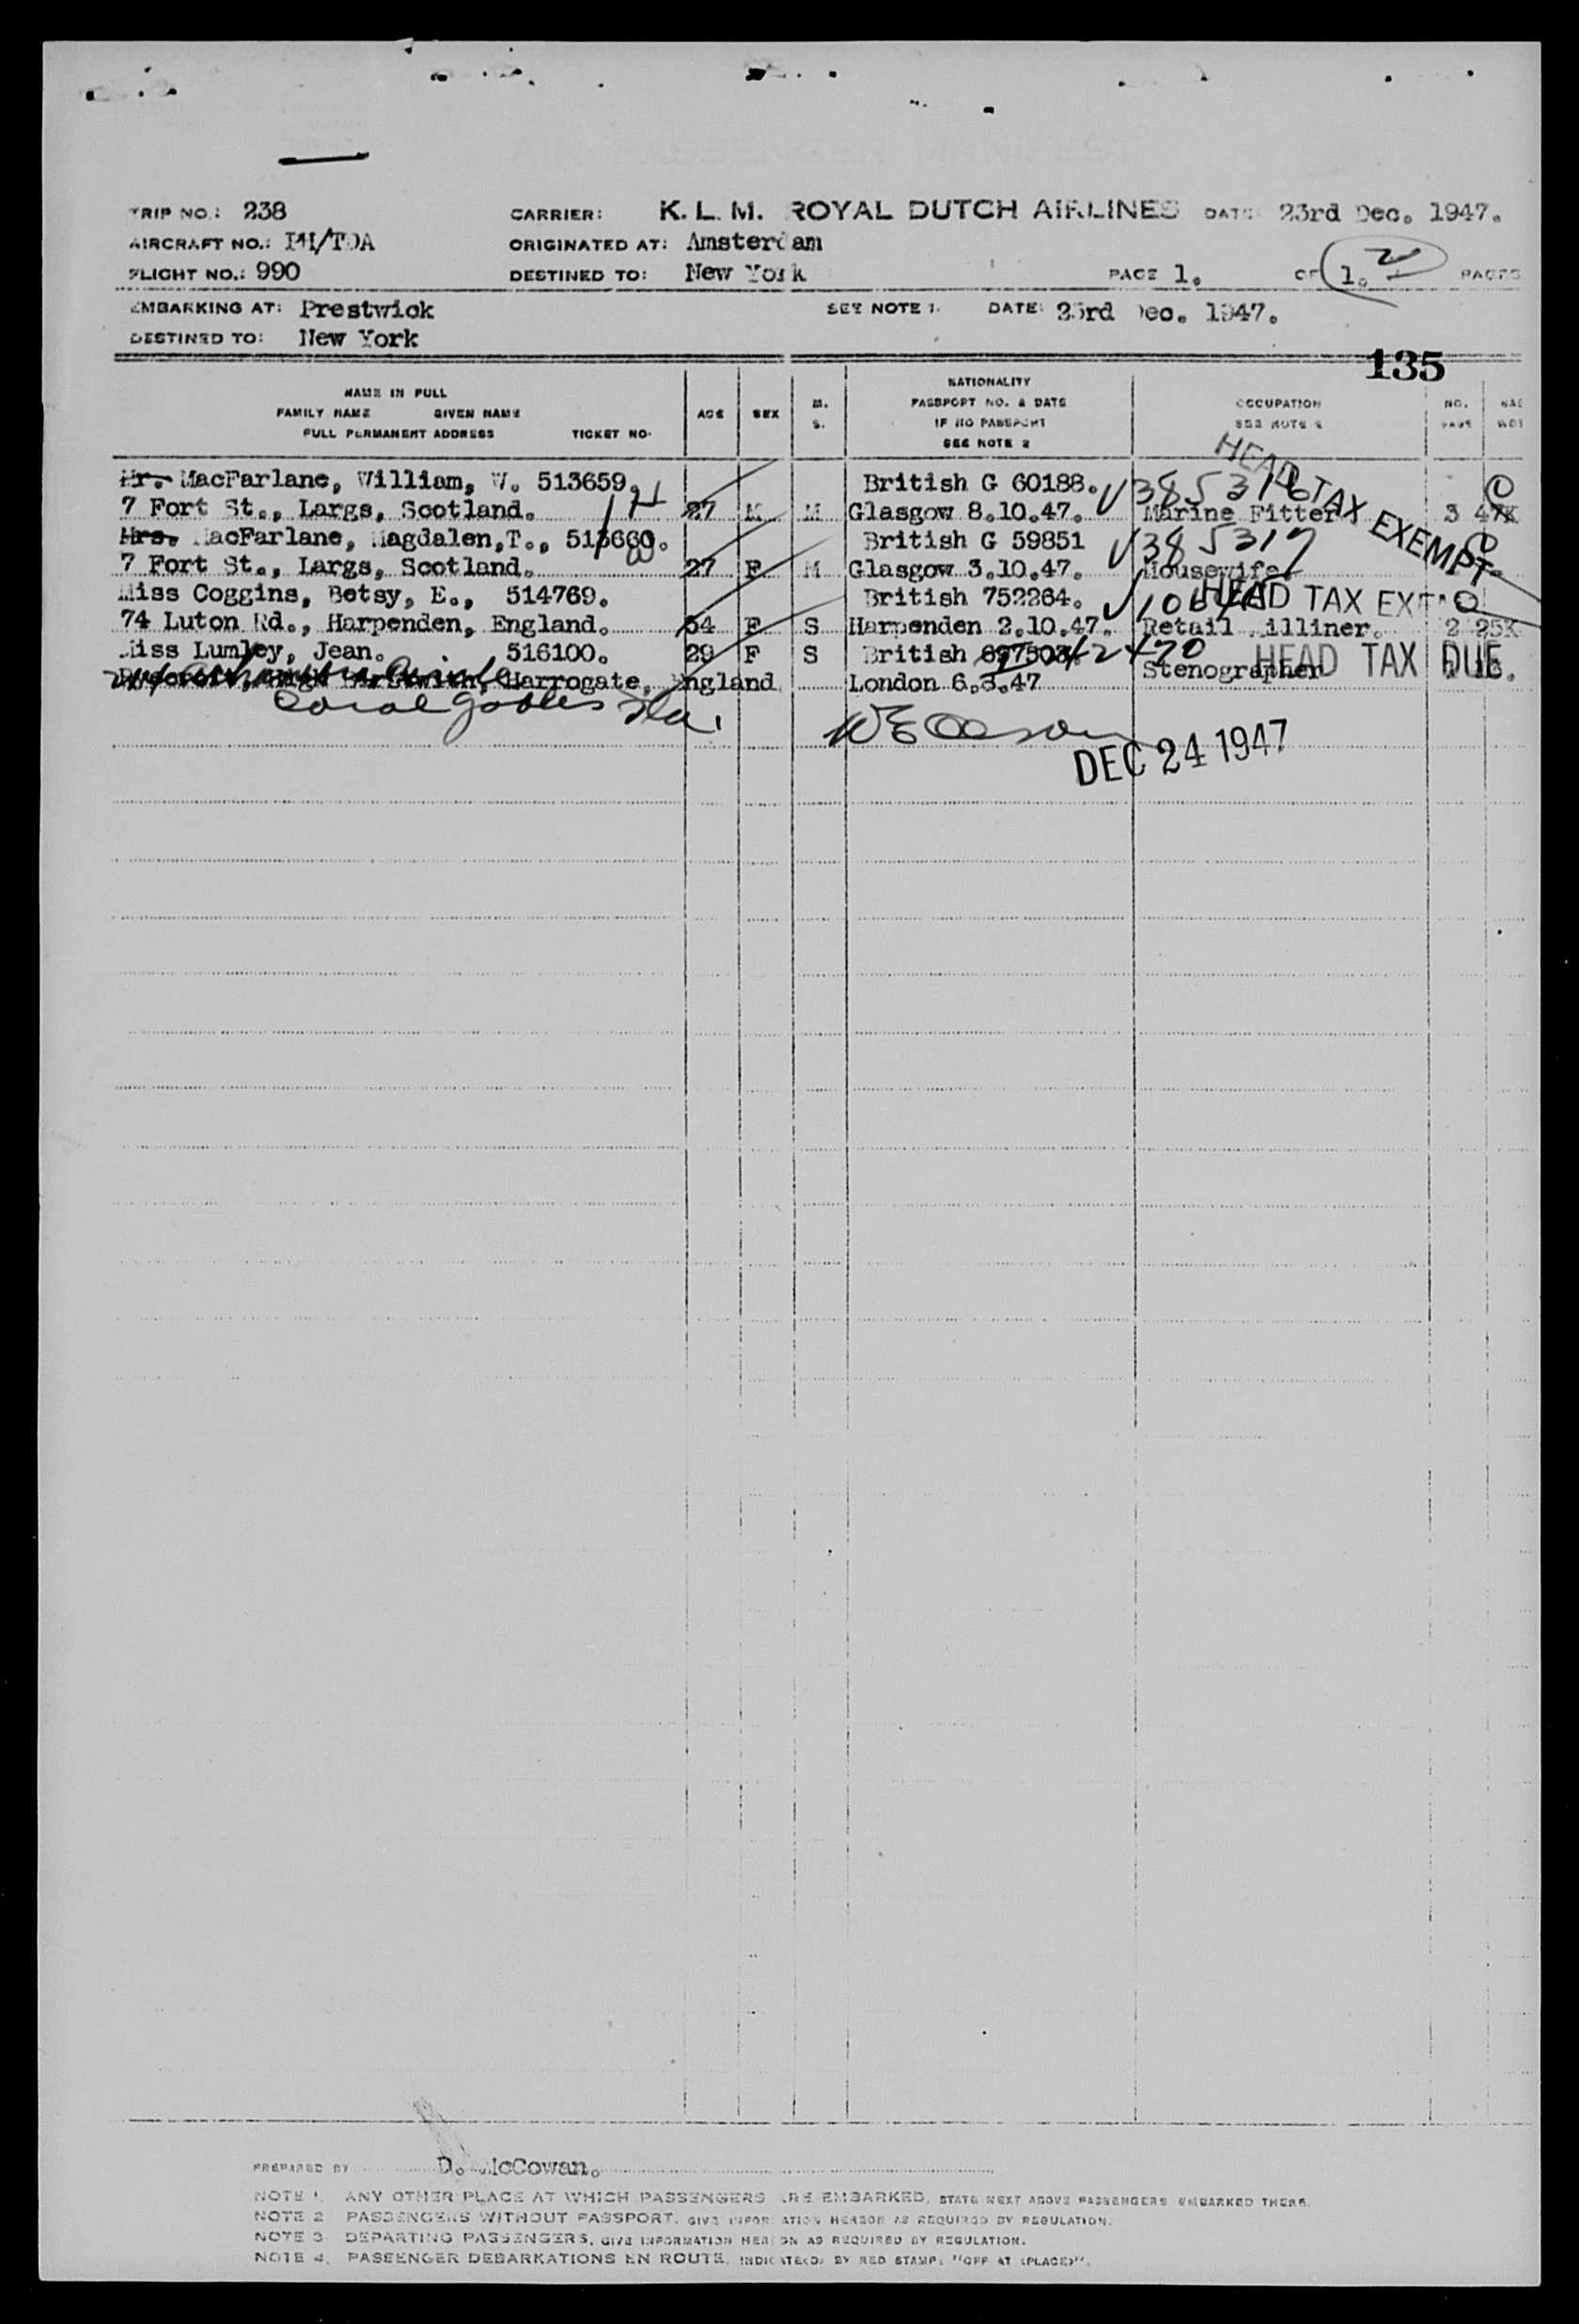 AIR PASSENGER MANIFEST
TRIP NO.: 238 CARRIER: K. L. M. ROYAL DUTCH AIRLINES DATE: 23rd Dec. 1947.
AIRCRAFT NO.: PH/TDA ORIGINATED AT: Amsterdam
FLIGHT NO.: 990 DESTINED TO: New York PAGE 1. OF 1. 2 PAGES
EMBARKING AT: Prestwick SEE NOTE 1. DATE: 23rd Dec. 1947.
DESTINED TO: New York
135
NAME IN FULL
FAMILY NAME GIVEN NAME
FULL PERMANENT ADDRESS TICKET NO.
AGE SEX M. S.
NATIONALITY
PASSPORT NO. & DATE
IF NO PASSPORT
SEE NOTE 2
OCCUPATION
NO.
HEAD TAX EXEMPT
Mr. MacFarlane, William, W. 513659. British G 60188. 385316
7 Fort St., Largs, Scotland. 27 M M Glasgow 8.10.47. Marine Fitter 3 47K
Mrs. MacFarlane, Magdalen,T., 513660. British G 59851 385317
7 Fort St., Largs, Scotland. 27 F M Glasgow 3.10.47. Housewife
Miss Coggins, Betsy, E., 514769. British 752264. HEAD TAX EXE
74 Luton Rd., Harpenden, England. 54 F S Harpenden 2.10.47. Retail Milliner. 2 25K
Miss Lumley, Jean. 516100. 29 F S British HEAD TAX DUE
Harrogate, England London 6.3.47 Stenographer
Coral Gables Fla.
DEC 24 1947
PREPARED BY D. McCowan.
NOTE 1. ANY OTHER PLACE AT WHICH PASSENGERS ARE EMBARKED, STATE NEXT ABOVE PASSENGERS EMBARKED THERE.
NOTE 2 PASSENGERS WITHOUT PASSPORT, GIVE INFORMATION HEREON AS REQUIRED BY REGULATION.
NOTE 3 DEPARTING PASSENGERS, GIVE INFORMATION HEREON AS REQUIRED BY REGULATION.
NOTE 4. PASSENGER DEBARKATIONS EN ROUTE, INDICATE(D) BY RED STAMP: "OFF AT (PLACE)".